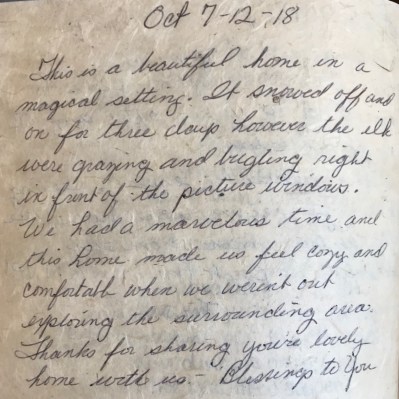 Oct 7-12-18
This is a beautiful home in a
magical setting. It snowed off and
on for three days however the elk
were grazing and bugling right
in front of the picture windows.
We had a marvelous time and
this home made us feel cozy and
comfortable when we weren't out
exploring the surrounding area.
Thanks for sharing you're lovely
home with us - Blessings to You